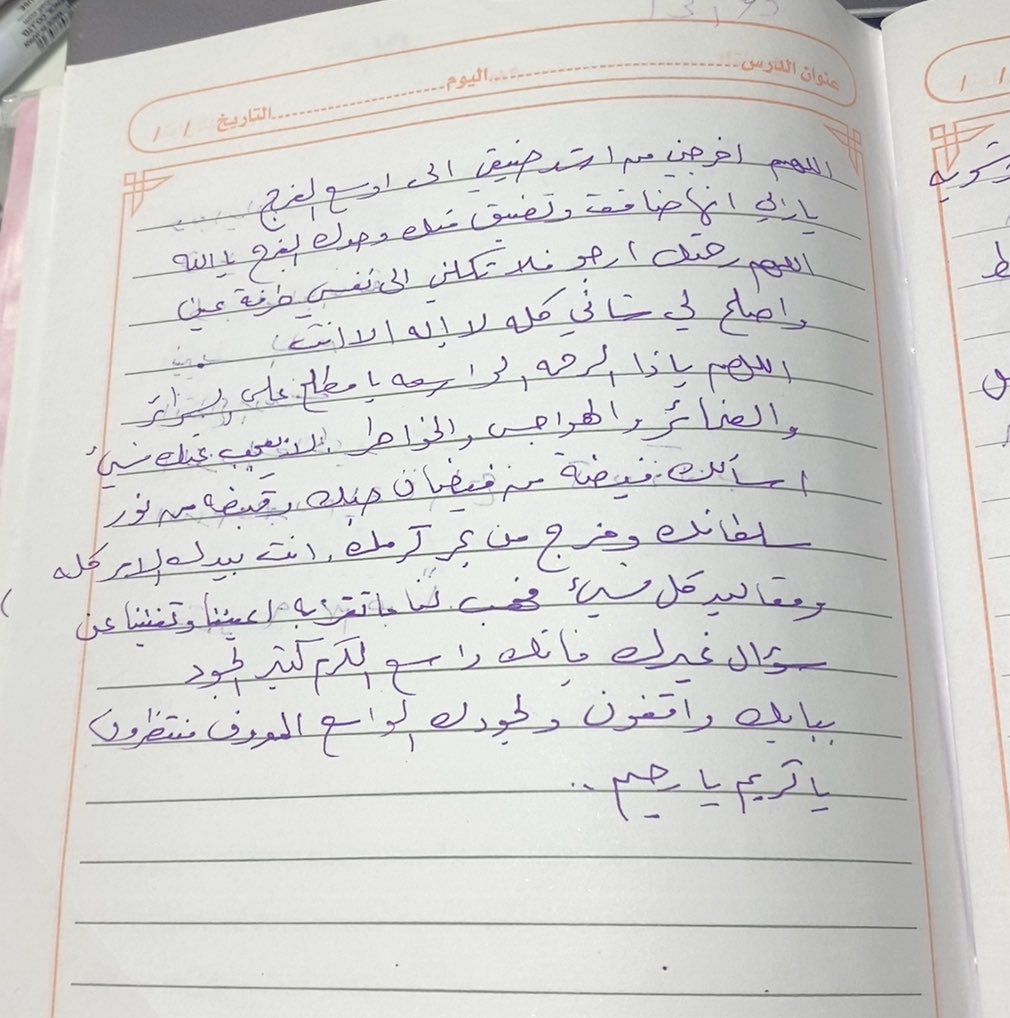 عنوان الدرس اليوم التاريخ / /
اللهم اخرجني من اشد ضيق الى اوسع الفرج
يا ربي انها ضاقت وتضيق منك وحدك الفرج يا الله
اللهم رحمتك ارجو فلا تكلني الى نفسي طرفة عين
واصلح لي شاني كله لا اله الا انت
اللهم ياذا الرحمه الواسعه يا مطلع على السرائر
والضمائر والهواجس والخواطر لا يعزب عنك شيئ
اسألك فيضة من فيضان فضلك وقبضه من نور
سلطانك وفرج من بحر كرمك. انت بيدك الامر كله
ومقاليد كل شيئ فهب لنا ماتقر به اعيننا وتغنينا عن
سؤال غيرك فأنك واسع الكرم كثير الجود
ببابك واقفون ولجودك الواسع المعروف منتظرون
يا كريم يا رحيم ..